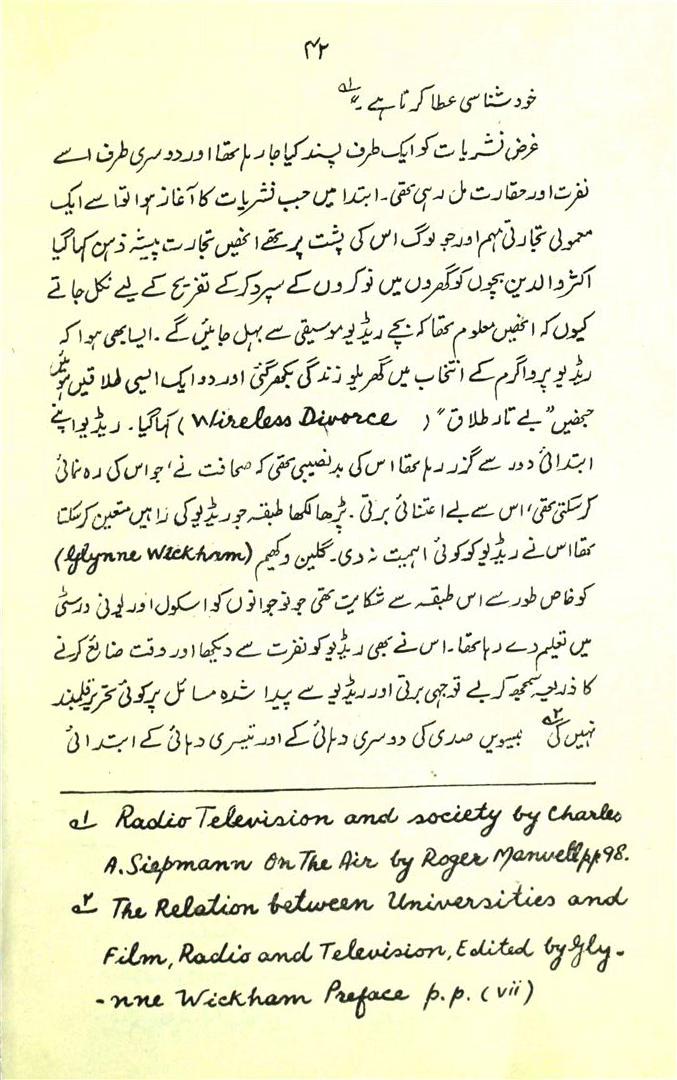 ۴۲
خود شناسی عطا کرتا ہے۔" ۱؎
غرض نشریات کو ایک طرف پسند کیا جا رہا تھا اور دوسری طرف اسے
نفرت اور حقارت مل رہی تھی۔ ابتدا میں جب نشریات کا آغاز ہوا تو اسے ایک
معمولی تجارتی مہم اور جو لوگ اس کی پشت پر تھے انھیں تجارت پیشہ ذہن کہا گیا
اکثر والدین بچوں کو گھروں میں نوکروں کے سپرد کرکے تفریح کے لیے نکل جاتے
کیوں کہ انھیں معلوم تھا کہ بچے ریڈیو موسیقی سے بہل جائیں گے۔ ایسا بھی ہوا کہ
ریڈیو پروگرام کے انتخاب میں گھریلو زندگی بکھر گئی اور دو ایک ایسی طلاقیں ہوئیں
جنھیں "بے تار طلاق" (Wireless Divorce) کہا گیا۔ ریڈیو اپنے
ابتدائی دور سے گزر رہا تھا اس کی بدنصیبی تھی کہ صحافت نے، جو اس کی رہ نمائی
کر سکتی تھی، اس سے بے اعتنائی برتی۔ پڑھا لکھا طبقہ جو ریڈیو کی راہیں متعین کر سکتا
تھا اس نے ریڈیو کو کوئی اہمیت نہ دی۔ گلین وکھیم (Glynne Wickham)
کو خاص طور سے اس طبقہ سے شکایت تھی جو نوجوانوں کو اسکول اور یونی ورسٹی
میں تعلیم دے رہا تھا۔ اس نے بھی ریڈیو کو نفرت سے دیکھا اور وقت ضائع کرنے
کا ذریعہ سمجھ کر بے توجہی برتی اور ریڈیو سے پیدا شدہ مسائل پر کوئی تحریر قلمبند
نہیں کی ۲؎ بیسویں صدی کی دوسری دہائی کے اور تیسری دہائی کے ابتدائی
۱؎ Radio Television and society by Charles
A. Siepmann On The Air by Roger Manvell pp 98.
۲؎ The Relation between Universities and
Film, Radio and Television, Edited by Gly-
-nne Wickham Preface p.p. (vii)